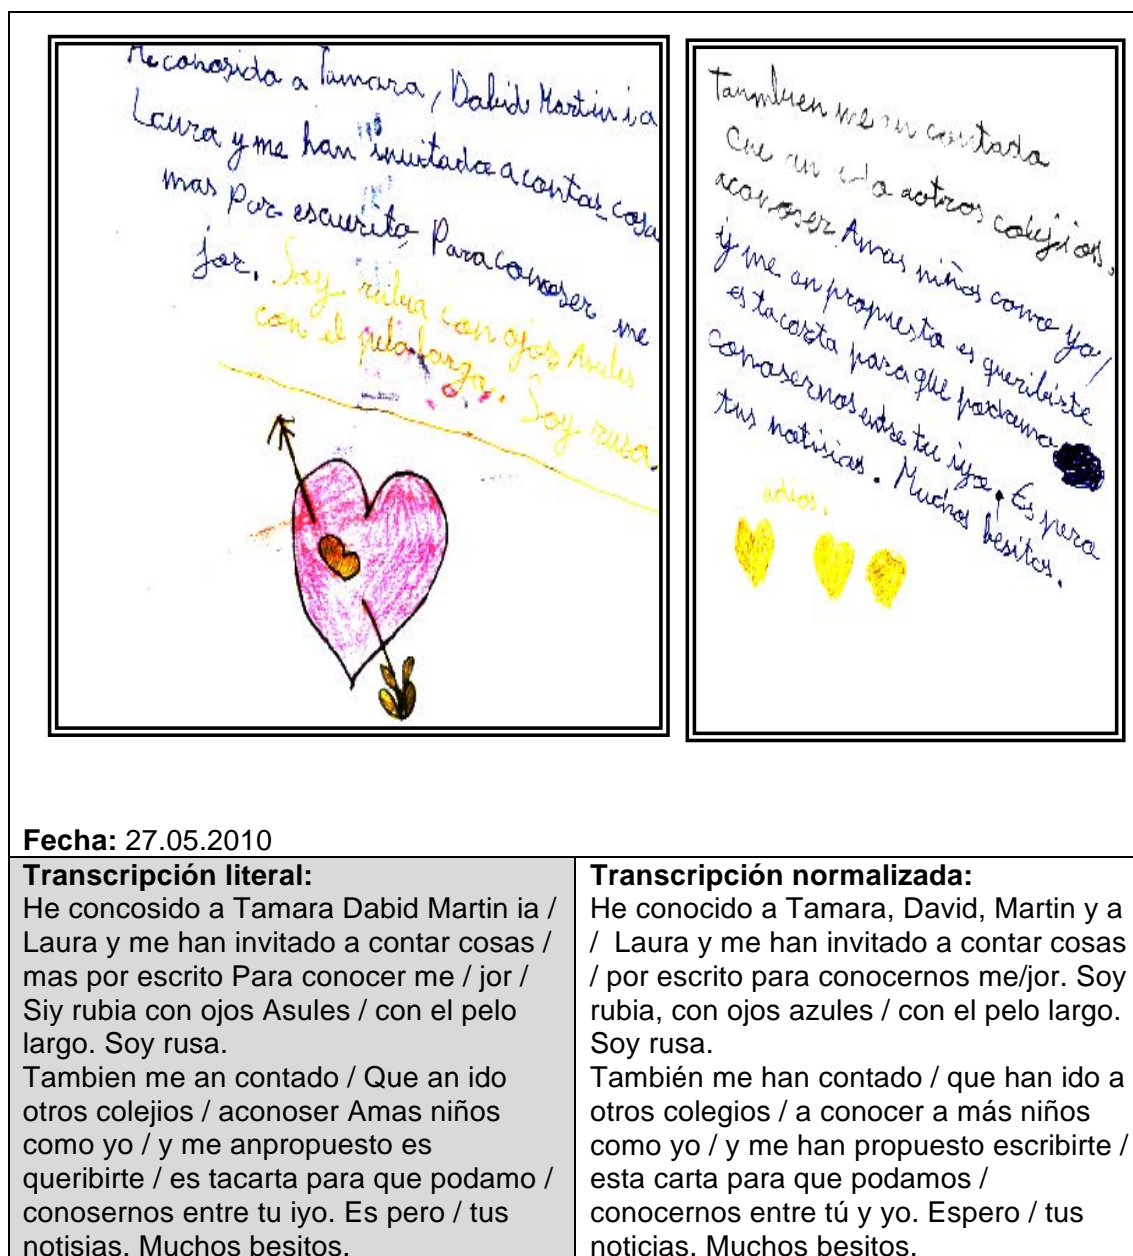 He conosido a Tamara, Dabid Martin i a
Laura y me han invitado a contar cosa
mas Por escurito Para conoser me
jor. Soy rubia con ojos Asules
con el pelo largo. Soy rusa.
Tanmbien me an contado
Cue an ido aotros colejios.
aconoser Amas niños como yo/
y me an propuesto es queribirte
es tacarta para que podamo
conosernos entre tu iyo. Es pero
tus notisias. Muchos besitos.
adios.
Fecha: 27.05.2010
Transcripción literal:
He concosido a Tamara Dabid Martin ia /
Laura y me han invitado a contar cosas /
mas por escrito Para conocer me / jor /
Siy rubia con ojos Asules / con el pelo
largo. Soy rusa.
Tambien me an contado / Que an ido
otros colejios / aconoser Amas niños
como yo / y me anpropuesto es
queribirte / es tacarta para que podamo /
conosernos entre tu iyo. Es pero / tus
notisias. Muchos besitos.
Transcripción normalizada:
He conocido a Tamara, David, Martin y a
/ Laura y me han invitado a contar cosas
/ por escrito para conocernos me/jor. Soy
rubia, con ojos azules / con el pelo largo.
Soy rusa.
También me han contado / que han ido a
otros colegios / a conocer a más niños
como yo / y me han propuesto escribirte /
esta carta para que podamos /
conocernos entre tú y yo. Espero / tus
noticias. Muchos besitos.